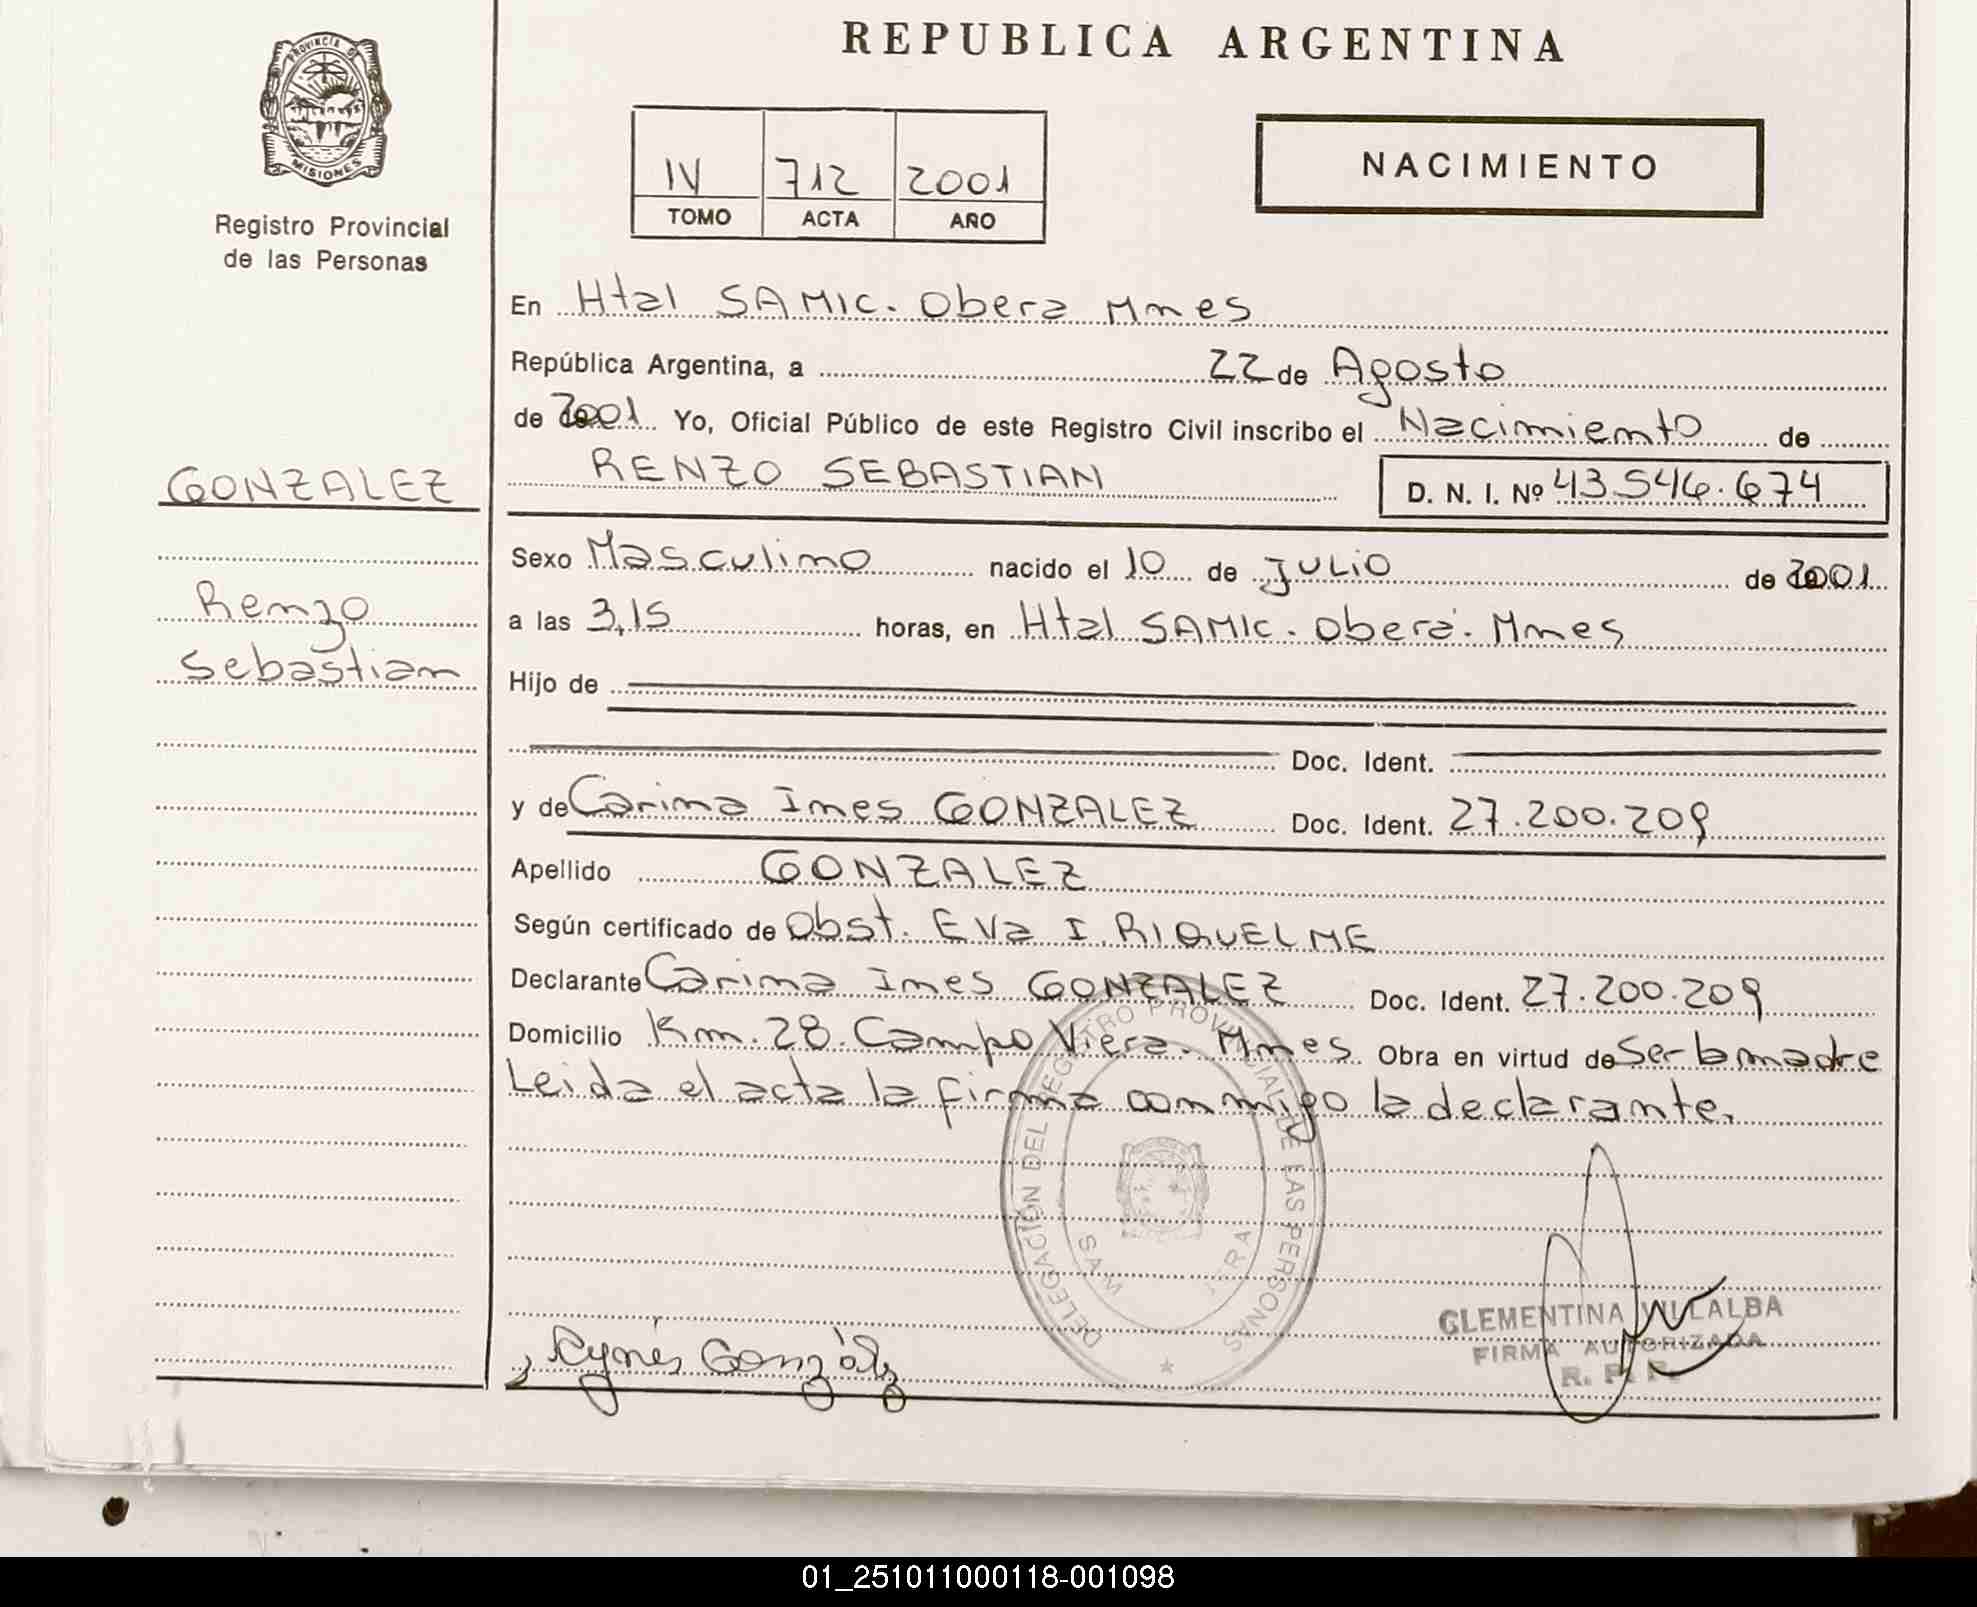 PROVINCIA DE
MISIONES
Registro Provincial
de las Personas
GONZALEZ
Renzo
Sebastian
REPUBLICA ARGENTINA
IV 712 2001
TOMO ACTA AÑO
NACIMIENTO
En Htal SAMIC. Obera Mnes
República Argentina, a 22 de Agosto
de 2001 Yo, Oficial Público de este Registro Civil inscribo el Nacimiento de
RENZO SEBASTIAN D. N. I. Nº 43.546.674
Sexo Masculino nacido el 10 de JULIO de 2001
a las 3,15 horas, en Htal SAMIC. Oberá. Mnes
Hijo de
Doc. Ident.
y de Carina Ines GONZALEZ Doc. Ident. 27.200.209
Apellido GONZALEZ
Según certificado de Obst. Eva I. RIQUELME
Declarante Carina Ines GONZALEZ Doc. Ident. 27.200.209
Domicilio Km. 28. Campo Viera. Mnes Obra en virtud de Ser la madre
Leida el acta la firma conmigo la declarante.
DELEGACIÓN DEL REGISTRO PROVINCIAL DE LAS PERSONAS
González
CLEMENTINA VILLALBA
FIRMA AUTORIZADA
R. P. P.
01_251011000118-001098